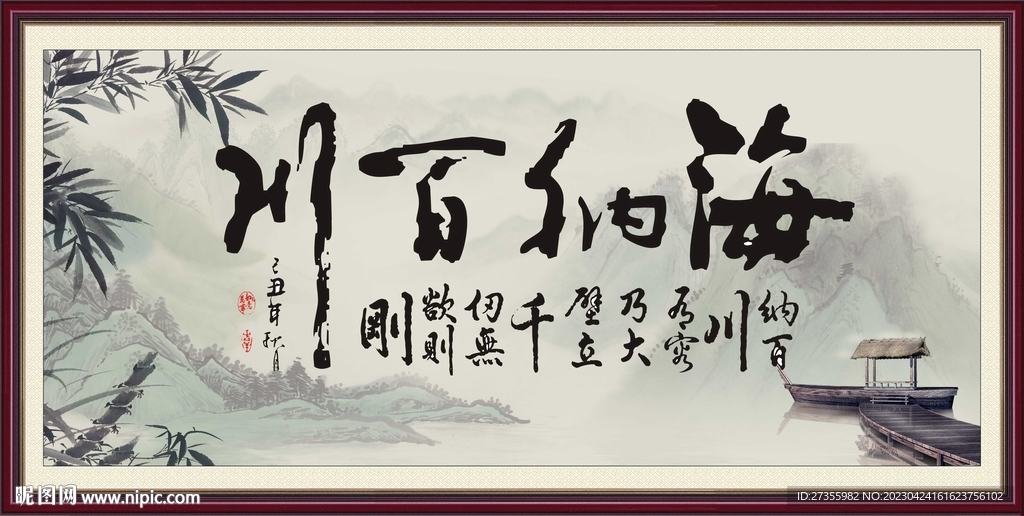 海納百川
納百
川
有容
乃大
壁立
千
仞無
欲則
剛
己丑年秋月
昵图网 www.nipic.com
ID:27355982 NO:20230424161623756102